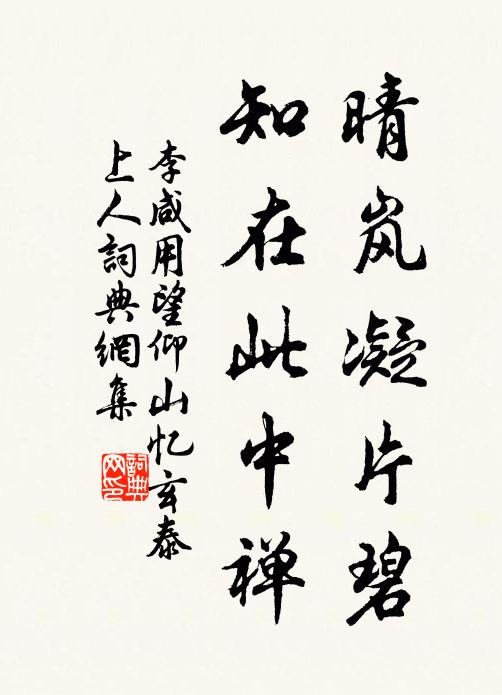 晴岚凝片碧
知在此中禅
李咸用望仰山忆玄泰
上人詞典網集
詞典
网印